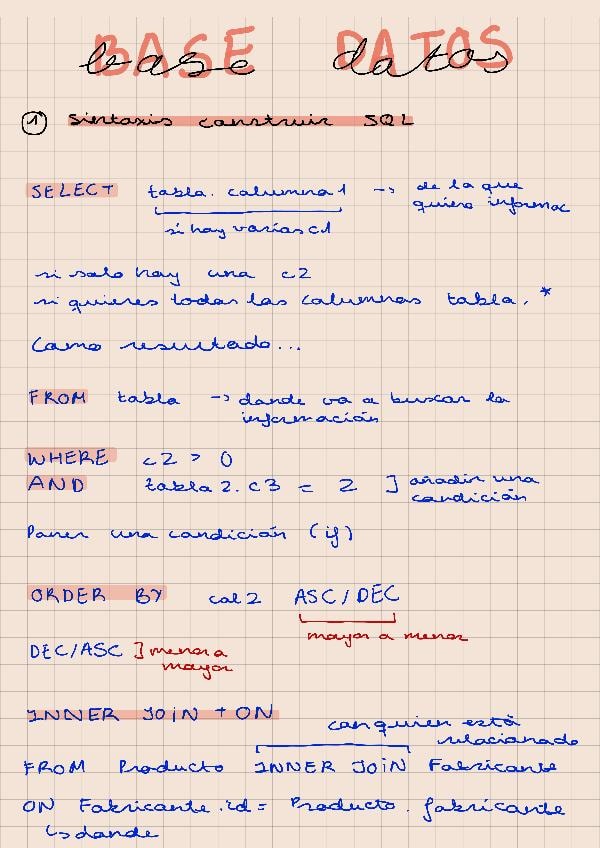 BASE DATOS
base datos
1 Sintaxis construir SQL
SELECT tabla.columna1 -> de la que quiero informac
si hay varias c1
si solo hay una c2
si quieres todas las columnas tabla.*
Como resultado...
FROM tabla -> donde va a buscar la
información
WHERE c2 > 0
AND tabla2.c3 = 2 ] añadir una
condición
Poner una condición (if)
ORDER BY col2 ASC/DEC
mayor a menor
DEC/ASC ] menor a
mayor
INNER JOIN + ON
con quien está
relacionado
FROM Producto INNER JOIN Fabricante
ON Fabricante.id = Producto.fabricante
↳ donde